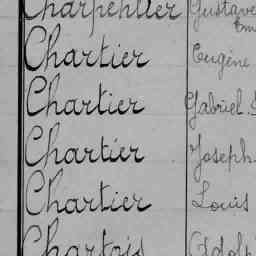 Charpentier Gustave
Chartier Eugène
Chartier Gabriel
Chartier Joseph
Chartier Louis
Chartois Adolp